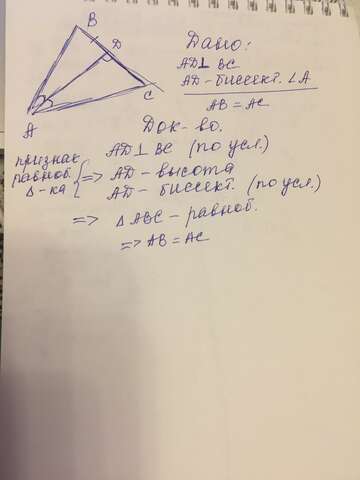 B
D
C
A
Дано:
AD⊥ BC
AD - биссект. ∠A
AB = AC
Док-во.
AD⊥ BC (по усл.)
признак
равноб.
Δ-ка
=> AD - высота
AD - биссект. (по усл.)
=> Δ ABC - равноб.
=> AB = AC